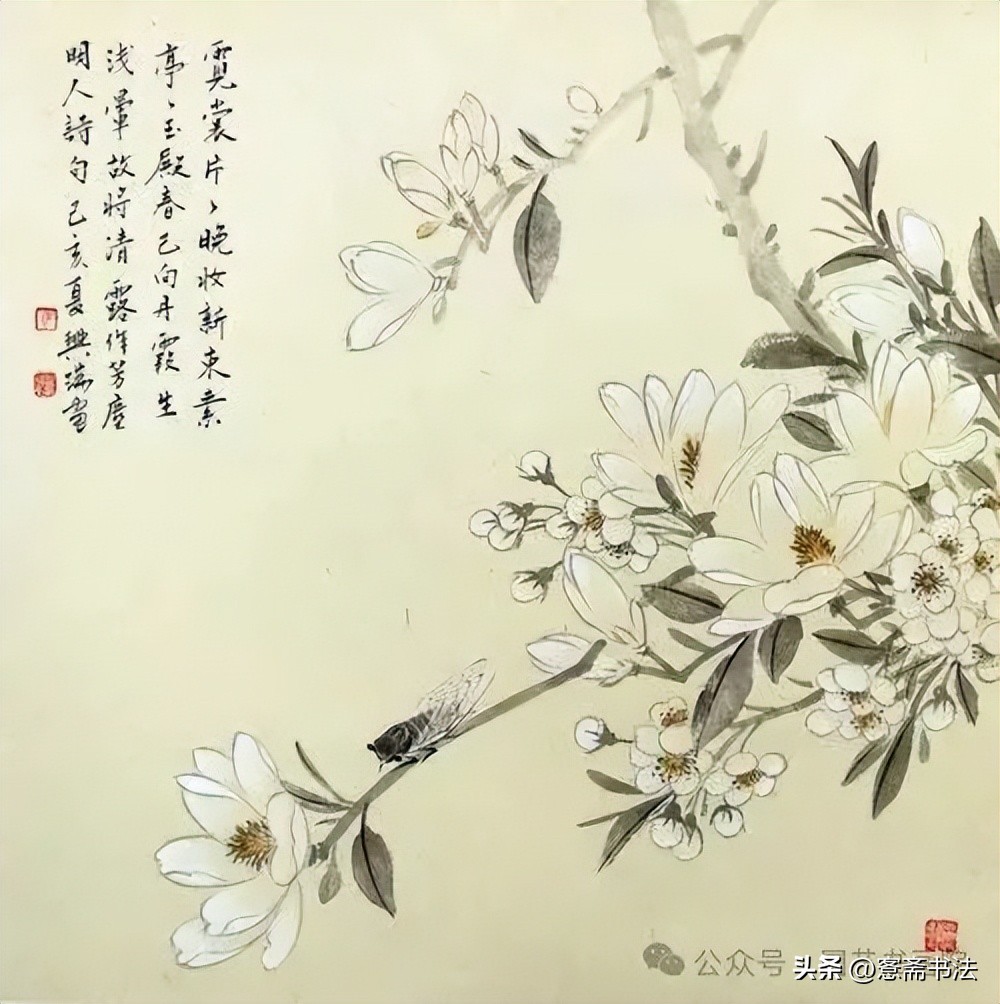 霓裳片〻晚妆新束素
亭〻玉殿春已向丹霞生
浅暈故将清露作芳塵
明人詩句己亥夏興瑞畫
公众号
头条 @愙斋书法